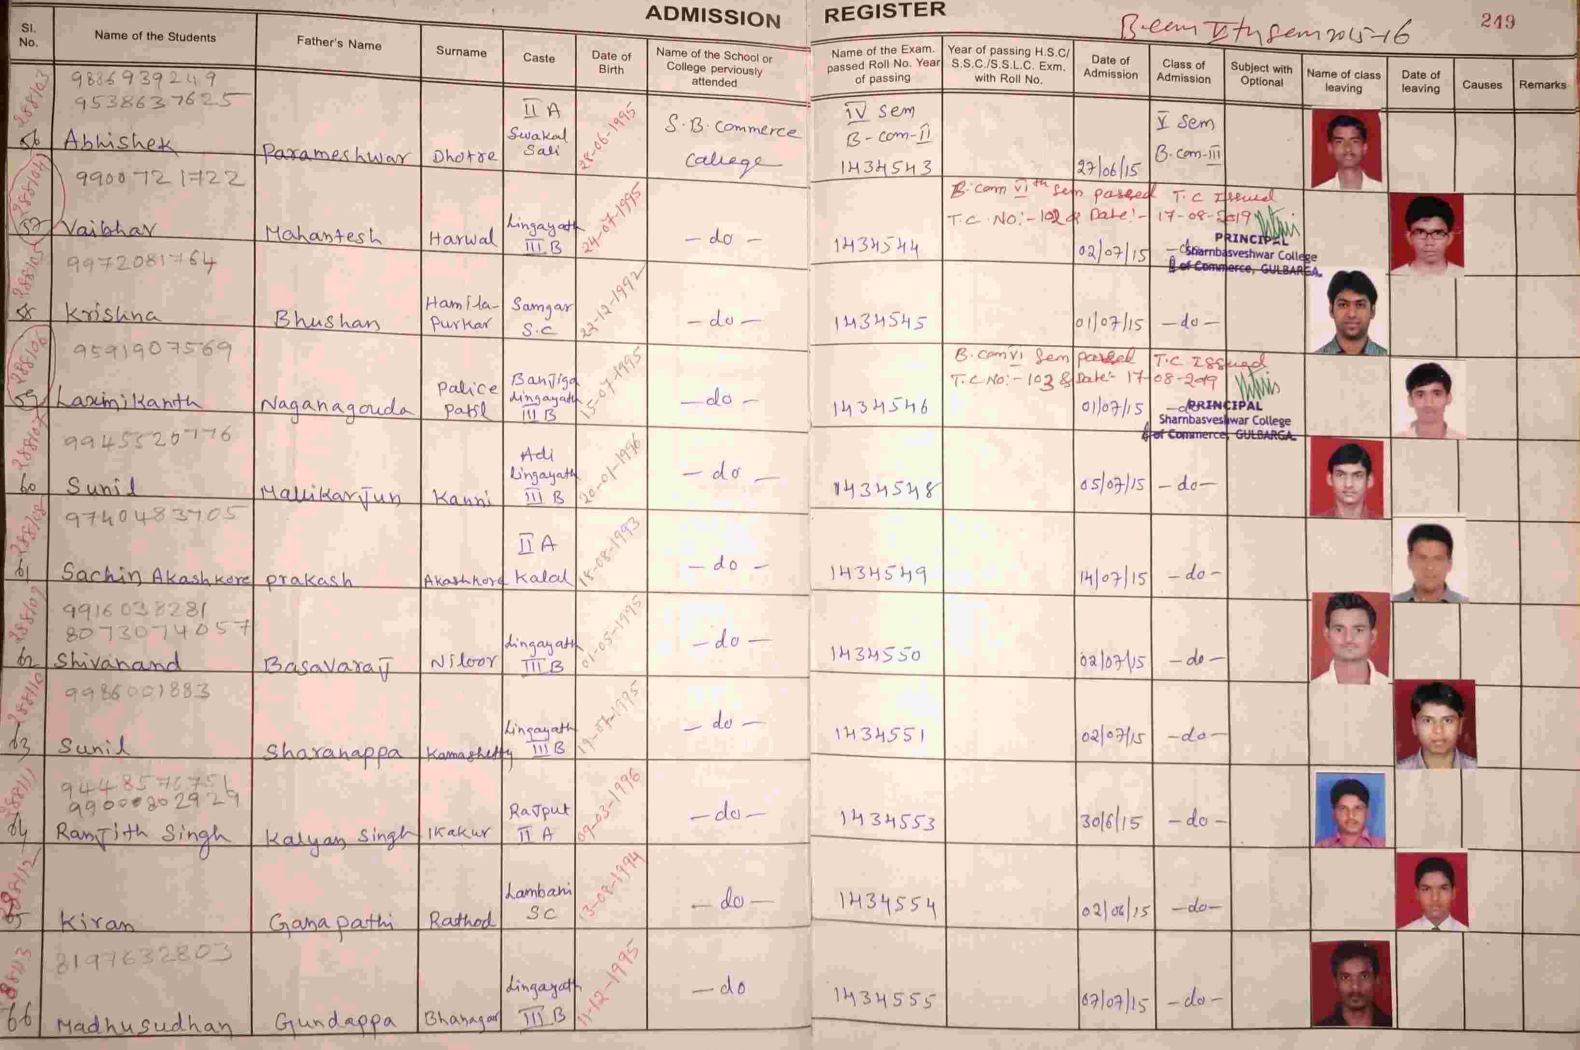 ADMISSION REGISTER
B.com Vth Sem 2015-16
249
Sl. No.
Name of the Students
Father's Name
Surname
Caste
Date of Birth
Name of the School or College perviously attended
Name of the Exam. passed Roll No. Year of passing
Year of passing H.S.C/ S.S.C./S.S.L.C. Exm. with Roll No.
Date of Admission
Class of Admission
Subject with Optional
Name of class leaving
Date of leaving
Causes
Remarks
288103
9886939249
9538637625
56 Abhishek Parameshwar Dhotre II A Swakal Sali 28-06-1995 S.B. Commerce College IV Sem B-com-II 1434543 27/06/15 V Sem B.com-III
288104
9900721722
57 Vaibhav Mahantesh Harwal Lingayath III B 24-07-1995 -do- 1434544 02/07/15 -do-
B.com VIth Sem passed T.C Issued
T.C. No:-102 & Date:- 17-08-2019
PRINCIPAL
Sharnbasveshwar College
of Commerce, GULBARGA.
9972081764
58 Krishna Bhushan Hamilapurkar Samgar S.C 22-12-1992 -do- 1434545 01/07/15 -do-
9591907569
59 Laxmikanth Naganagouda Police Patil Banjiga Lingayath III B 15-07-1995 -do- 1434546 01/07/15 -do-
B.com VI Sem passed T.C Issued
T.C No:-103 & Date:- 17-08-2019
PRINCIPAL
Sharnbasveshwar College
of Commerce, GULBARGA.
9945520776
60 Sunil Mallikarjun Kanni Adi Lingayath III B 20-01-1996 -do- 1434548 05/07/15 -do-
9740483705
61 Sachin Akashkore Prakash Akashkore II A Kalal 18-08-1993 -do- 1434549 14/07/15 -do-
9916038281
8073074057
62 Shivanand Basavaraj Niloor Lingayath III B 01-05-1995 -do- 1434550 02/07/15 -do-
9986001883
63 Sunil Sharanappa Kamashetty Lingayath III B -do- 1434551 02/07/15 -do-
64 Ranjith Singh Kalyan Singh Ikakur Rajput II A 09-03-1996 -do- 1434553 30/6/15 -do-
65 Kiran Ganapathi Rathod Lambani SC 13-08-1994 -do- 1434554 02/06/15 -do-
8197632803
66 Madhusudhan Gundappa Bhanagar Lingayath III B 11-12-1995 -do 1434555 07/07/15 -do-